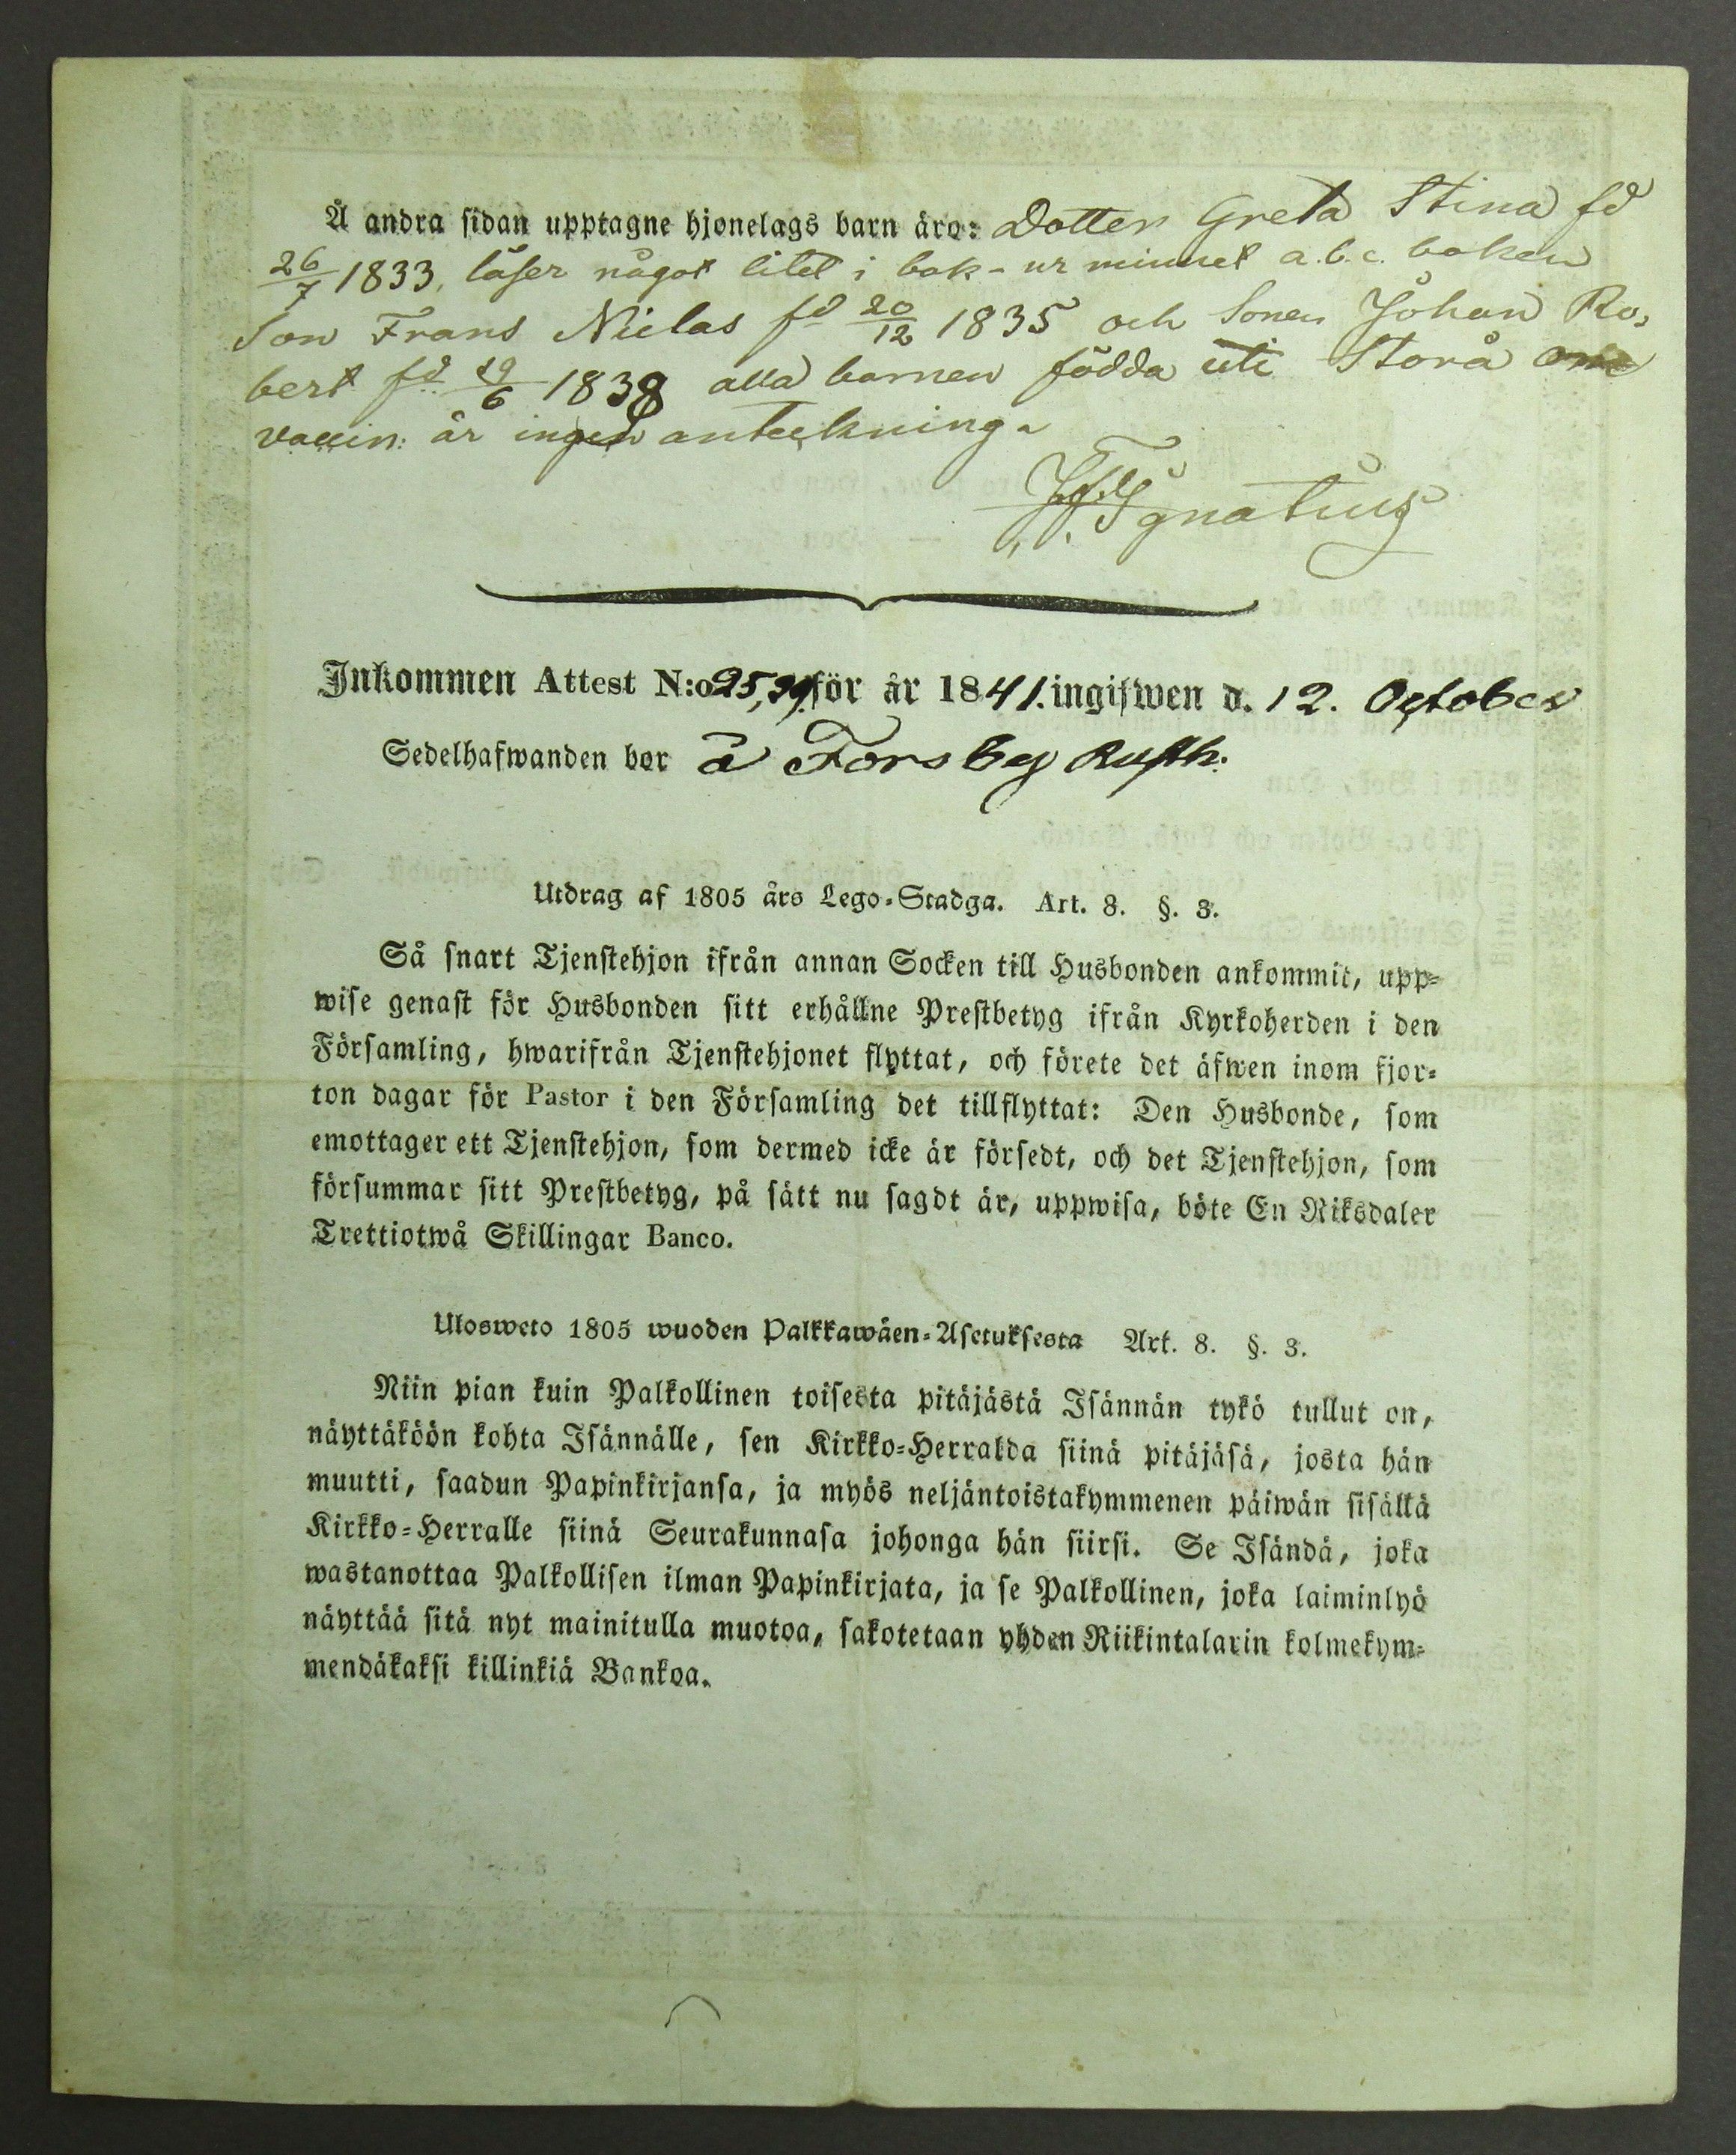 Å andra sidan upptagne hjonelags barn äro: Dotter Greta Stina fd
26/7 1833, läser något litet i bok - ur minnet a.b.c. boken
Son Frans Niclas fd 20/12 1835 och Sonen Johan Ro,
bert fd 19/6 1838 alla barnen födda uti Storå om
vaccin: är ingen anteckning.
Ignatius
Inkommen Attest N:o 25,39. för år 1841. ingifwen d. 12. October
Sedelhafwanden bor å Forsby Rusth.
Utdrag af 1805 års Lego-Stadga. Art. 8. §. 3.
Så snart Tjenstehjon ifrån annan Socken till Husbonden ankommit, upp-
wise genast för Husbonden sitt erhållne Prestbetyg ifrån Kyrkoherden i den
Församling, hwarifrån Tjenstehjonet flyttat, och förete det äfwen inom fjor-
ton dagar för Pastor i den Församling det tillflyttat: Den Husbonde, som
emottager ett Tjenstehjon, som dermed icke är försedt, och det Tjenstehjon, som
försummar sitt Prestbetyg, på sätt nu sagdt är, uppwisa, böte En Riksdaler
Trettiotwå Skillingar Banco.
Ulosweto 1805 wuoden Palkkawäen-Asetuksesta Art. 8. §. 3.
Niin pian kuin Palkollinen toisesta pitäjästä Isännän tykö tullut on,
näyttäköön kohta Isännälle, sen Kirkko-Herralda siinä pitäjäsä, josta hän
muutti, saadun Papinkirjansa, ja myös neljäntoistakymmenen päiwän sisällä
Kirkko-Herralle siinä Seurakunnasa johonga hän siirsi. Se Isändä, joka
wastanottaa Palkollisen ilman Papinkirjata, ja se Palkollinen, joka laiminlyö
näyttää sitä nyt mainitulla muotoa, sakotetaan yhden Riikintalarin kolmekym-
mendäkaksi killinkiä Bankoa.